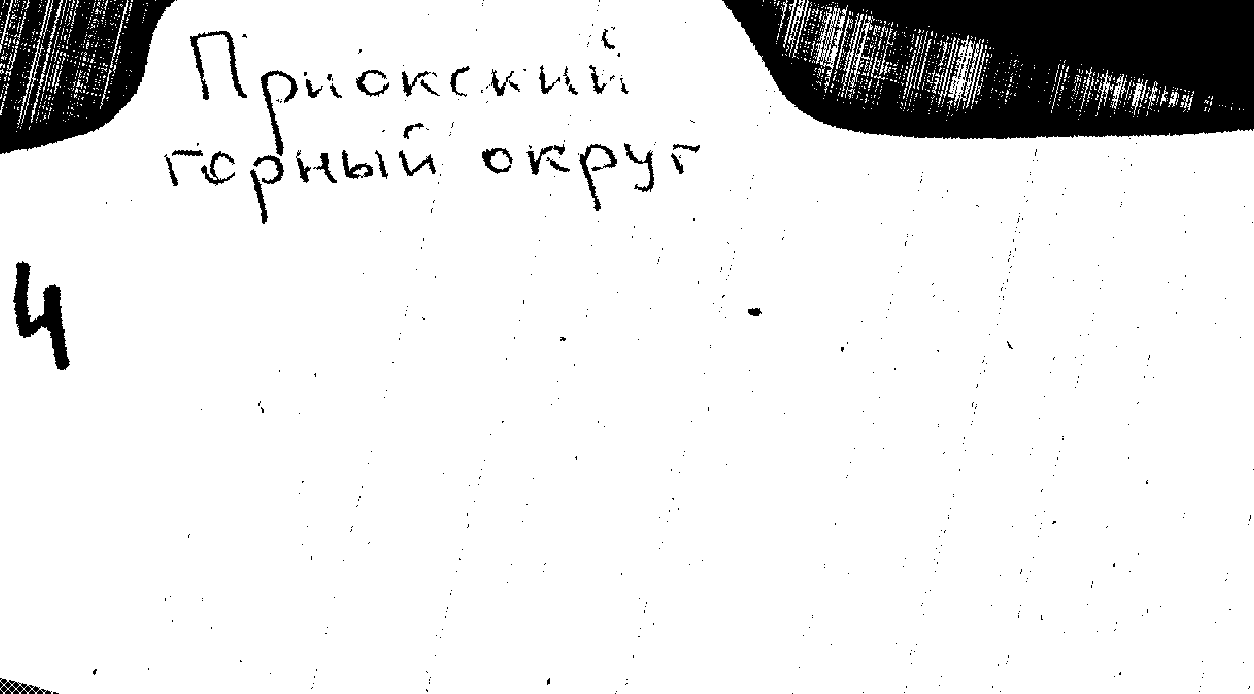 Приокский
горный округ
4